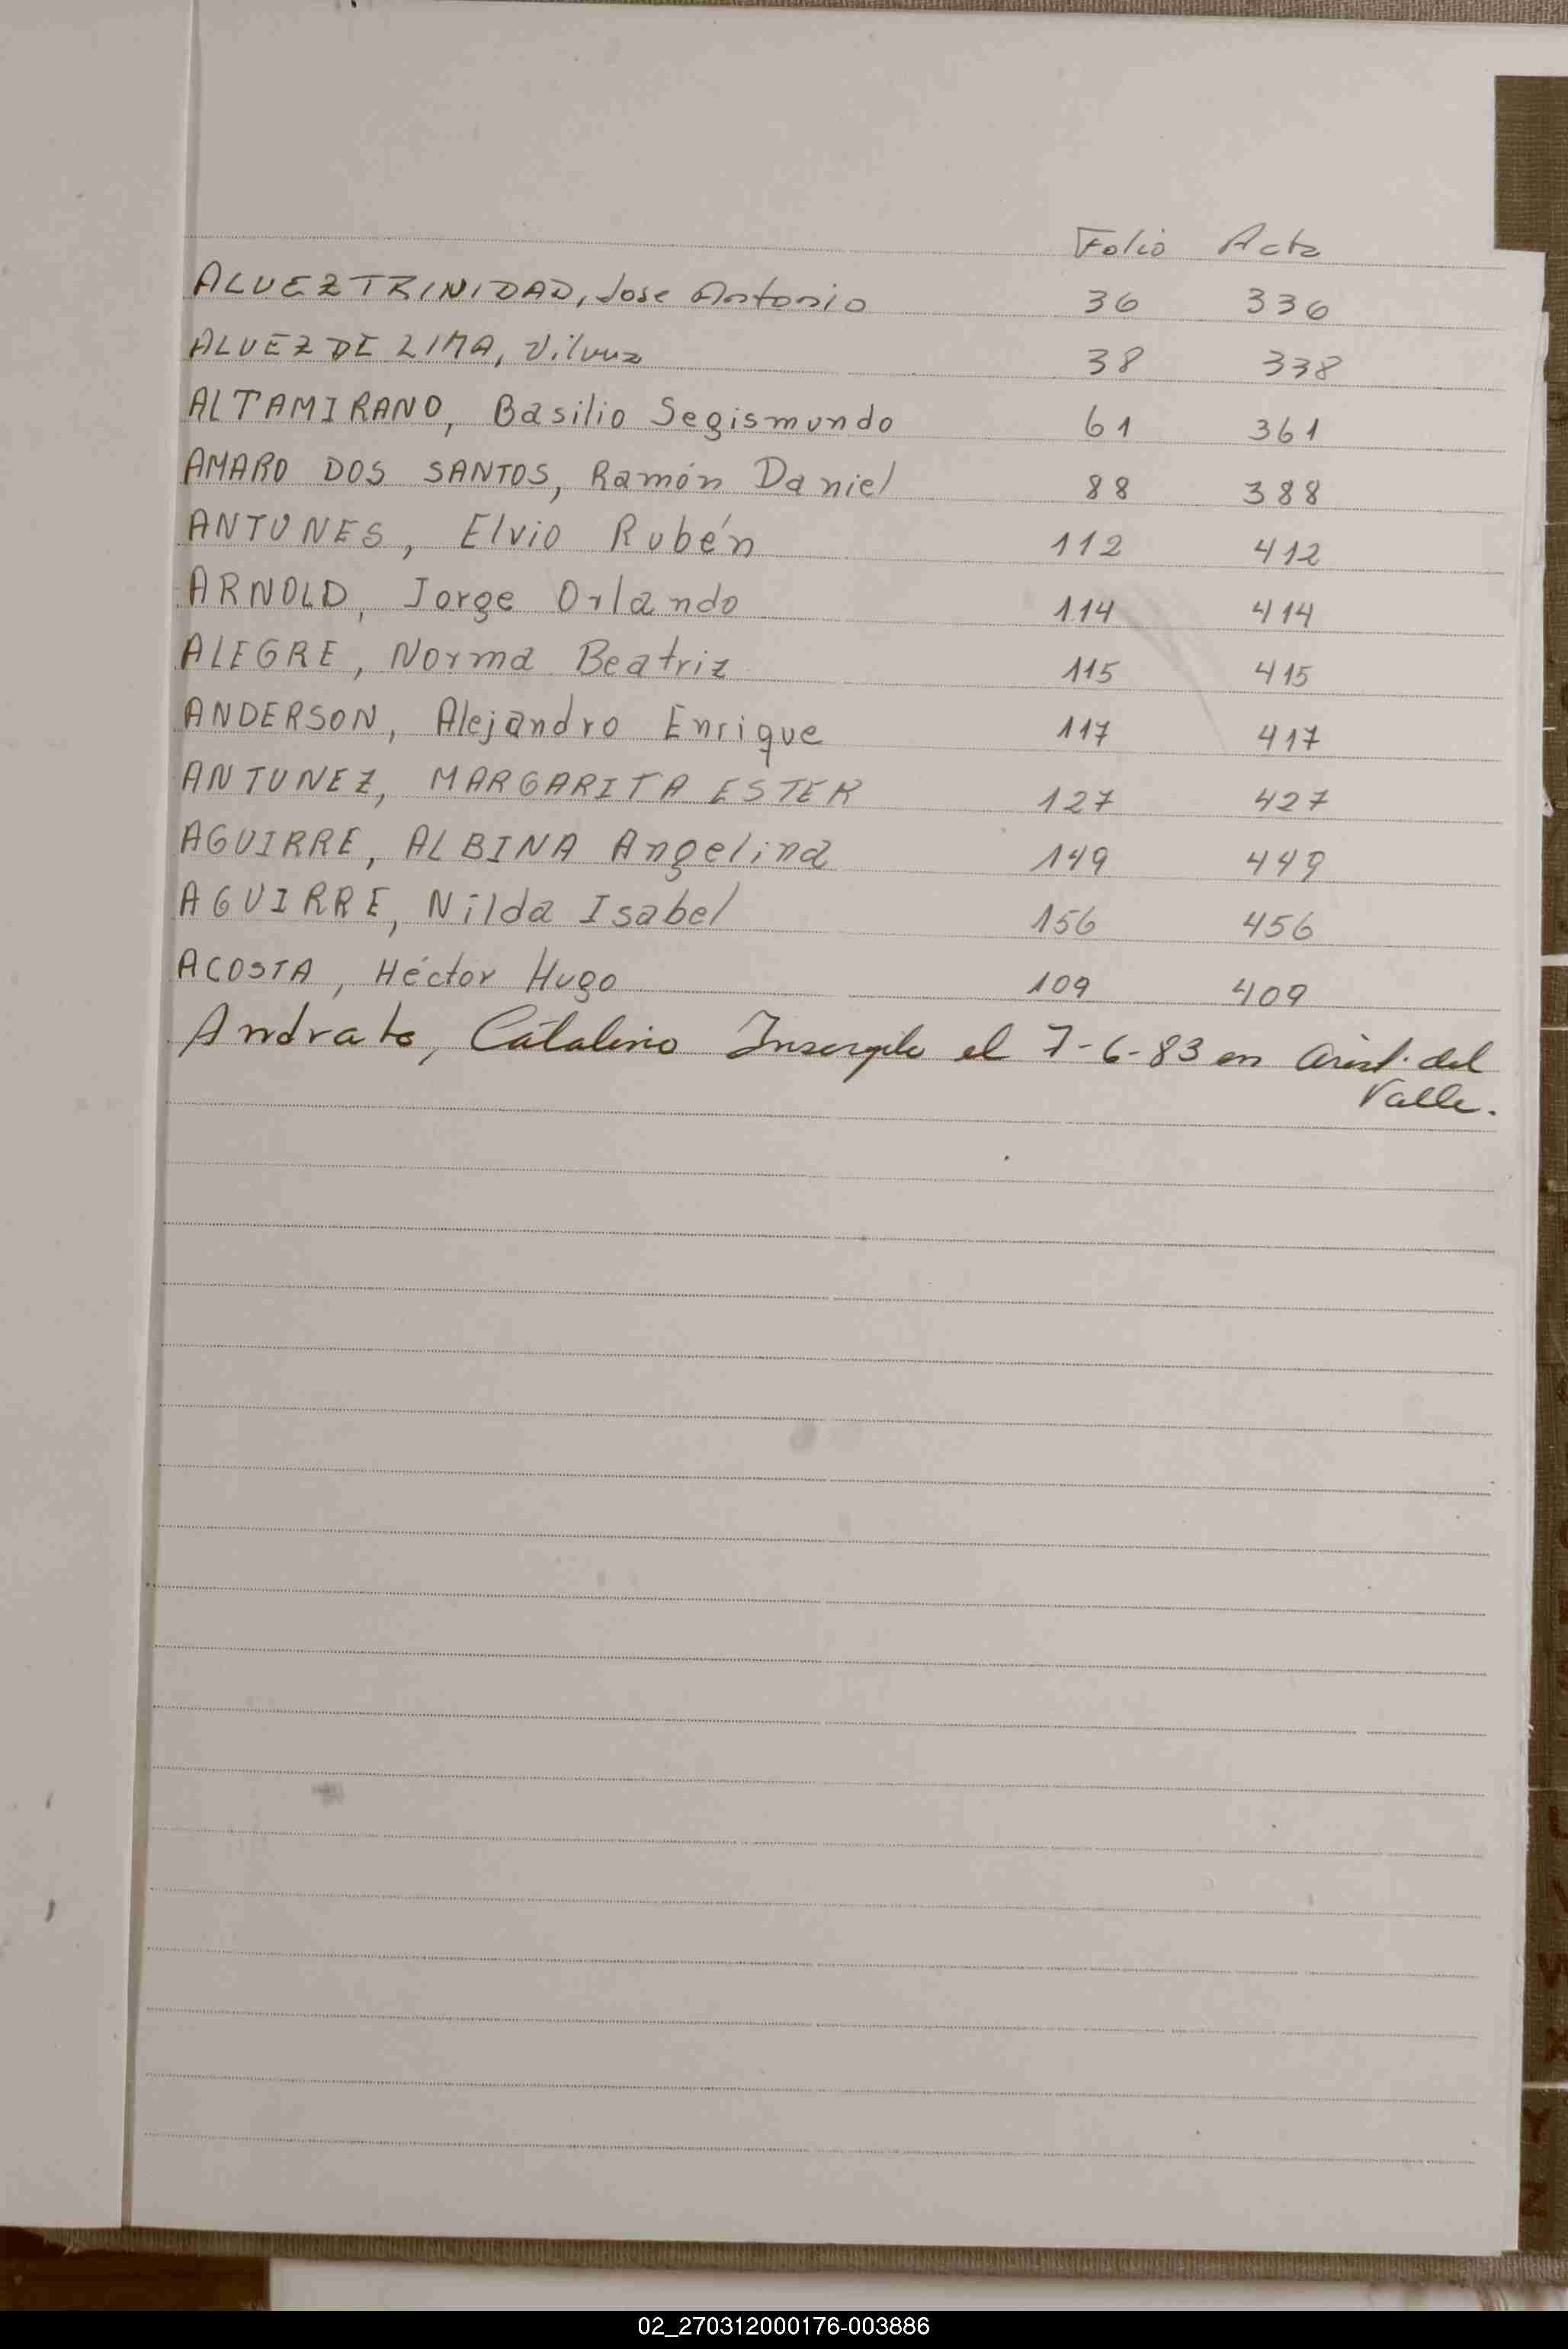 Folio Acta
ALVEZ TRINIDAD, Jose Antonio 36 336
ALVEZ DE LIMA, Vilmaz 38 338
ALTAMIRANO, Basilio Segismundo 61 361
AMARO DOS SANTOS, Ramón Daniel 88 388
ANTUNES, Elvio Rubén 112 412
ARNOLD, Jorge Orlando 114 414
ALEGRE, Norma Beatriz 115 415
ANDERSON, Alejandro Enrique 117 417
ANTUNEZ, MARGARITA ESTER 127 427
AGUIRRE, ALBINA Angelina 149 449
AGUIRRE, Nilda Isabel 156 456
ACOSTA, Héctor Hugo 109 409
Andrato, Catalino el 7-6-83 en Arist. del
Valle.
02_270312000176-003886